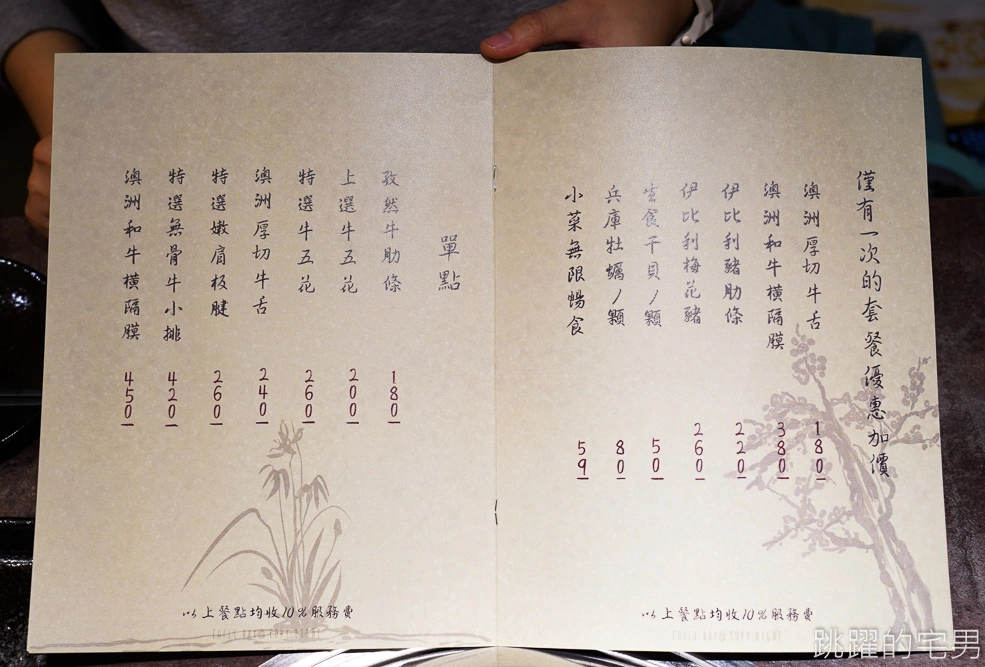 僅有一次的套餐優惠加價
澳洲厚切牛舌 180
澳洲和牛橫隔膜 380
伊比利豬肋條 220
伊比利梅花豬 260
生食干貝/顆 50
兵庫牡蠣/顆 80
小菜無限暢食 59
以上餐點均收10%服務費
單點
孜然牛肋條 180
上選牛五花 200
特選牛五花 260
澳洲厚切牛舌 240
特選嫩肩板腱 260
特選無骨牛小排 420
澳洲和牛橫隔膜 450
以上餐點均收10%服務費
跳躍的宅男